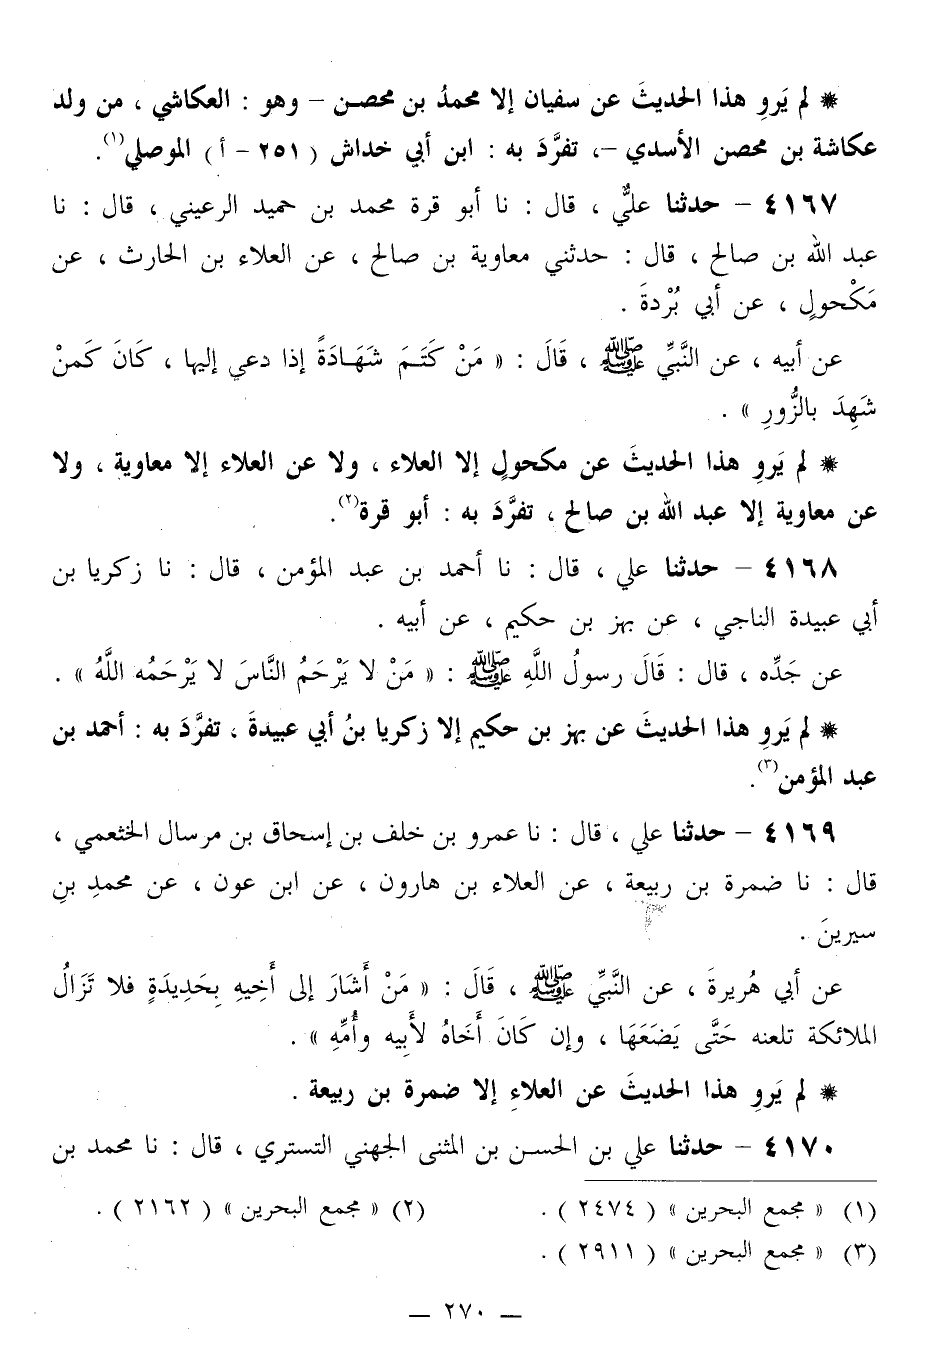 * لم يَروِ هذا الحديثَ عن سفيان إلا محمدُ بن محصن – وهو : العكاشي ، من ولد
عكاشة بن محصن الأسدي –، تفرَّدَ به : ابن أبي خداش ( ٢٥١ – أ ) الموصلي(١).
٤١٦٧ – حدثنا عليٌّ ، قال : نا أبو قرة محمد بن حميد الرعيني ، قال : نا
عبد الله بن صالح ، قال : حدثني معاوية بن صالح ، عن العلاء بن الحارث ، عن
مَكْحولٍ ، عن أبي بُرْدةَ .
عن أبيه ، عن النَّبيِّ ﷺ ، قَالَ : « مَنْ كَتَـمَ شَهَـادَةً إذا دعي إليها ، كَانَ كَمنْ
شَهِدَ بالزُّورِ » .
* لم يَروِ هذا الحديثَ عن مكحولٍ إلا العلاء ، ولا عن العلاء إلا معاوية ، ولا
عن معاوية إلا عبد الله بن صالح ، تفرَّدَ به : أبو قرة(٢).
٤١٦٨ – حدثنا علي ، قال : نا أحمد بن عبد المؤمن ، قال : نا زكريا بن
أبي عبيدة الناجي ، عن بهز بن حكيم ، عن أبيه .
عن جَدِّه ، قال : قَالَ رسولُ اللَّهِ ﷺ : « مَنْ لا يَرْحَمُ النَّاسَ لا يَرْحَمُه اللَّهُ » .
* لم يَروِ هذا الحديثَ عن بهز بن حكيم إلا زكريا بنُ أبي عبيدةَ ، تفرَّدَ به : أحمد بن
عبد المؤمن(٣).
٤١٦٩ – حدثنا علي ، قال : نا عمرو بن خلف بن إسحاق بن مرسال الخثعمي ،
قال : نا ضمرة بن ربيعة ، عن العلاء بن هارون ، عن ابن عون ، عن محمدِ بنِ
سيرينَ .
عن أبي هُريرةَ ، عن النَّبيِّ ﷺ ، قَالَ : « مَنْ أَشَارَ إلى أَخِيهِ بِحَدِيدَةٍ فلا تَزَالُ
الملائكة تلعنه حَتَّى يَضَعَهَا ، وإن كَانَ أَخَاهُ لأَبِيه وأُمِّهِ » .
* لم يَروِ هذا الحديثَ عن العلاءِ إلا ضمرة بن ربيعة .
٤١٧٠ – حدثنا علي بن الحسـن بن المثنى الجهني التستري ، قال : نا محمد بن
(١) « مجمع البحرين » ( ٢٤٧٤ ) . (٢) « مجمع البحرين » ( ٢١٦٢ ) .
(٣) « مجمع البحرين » ( ٢٩١١ ) .
— ٢٧٠ —